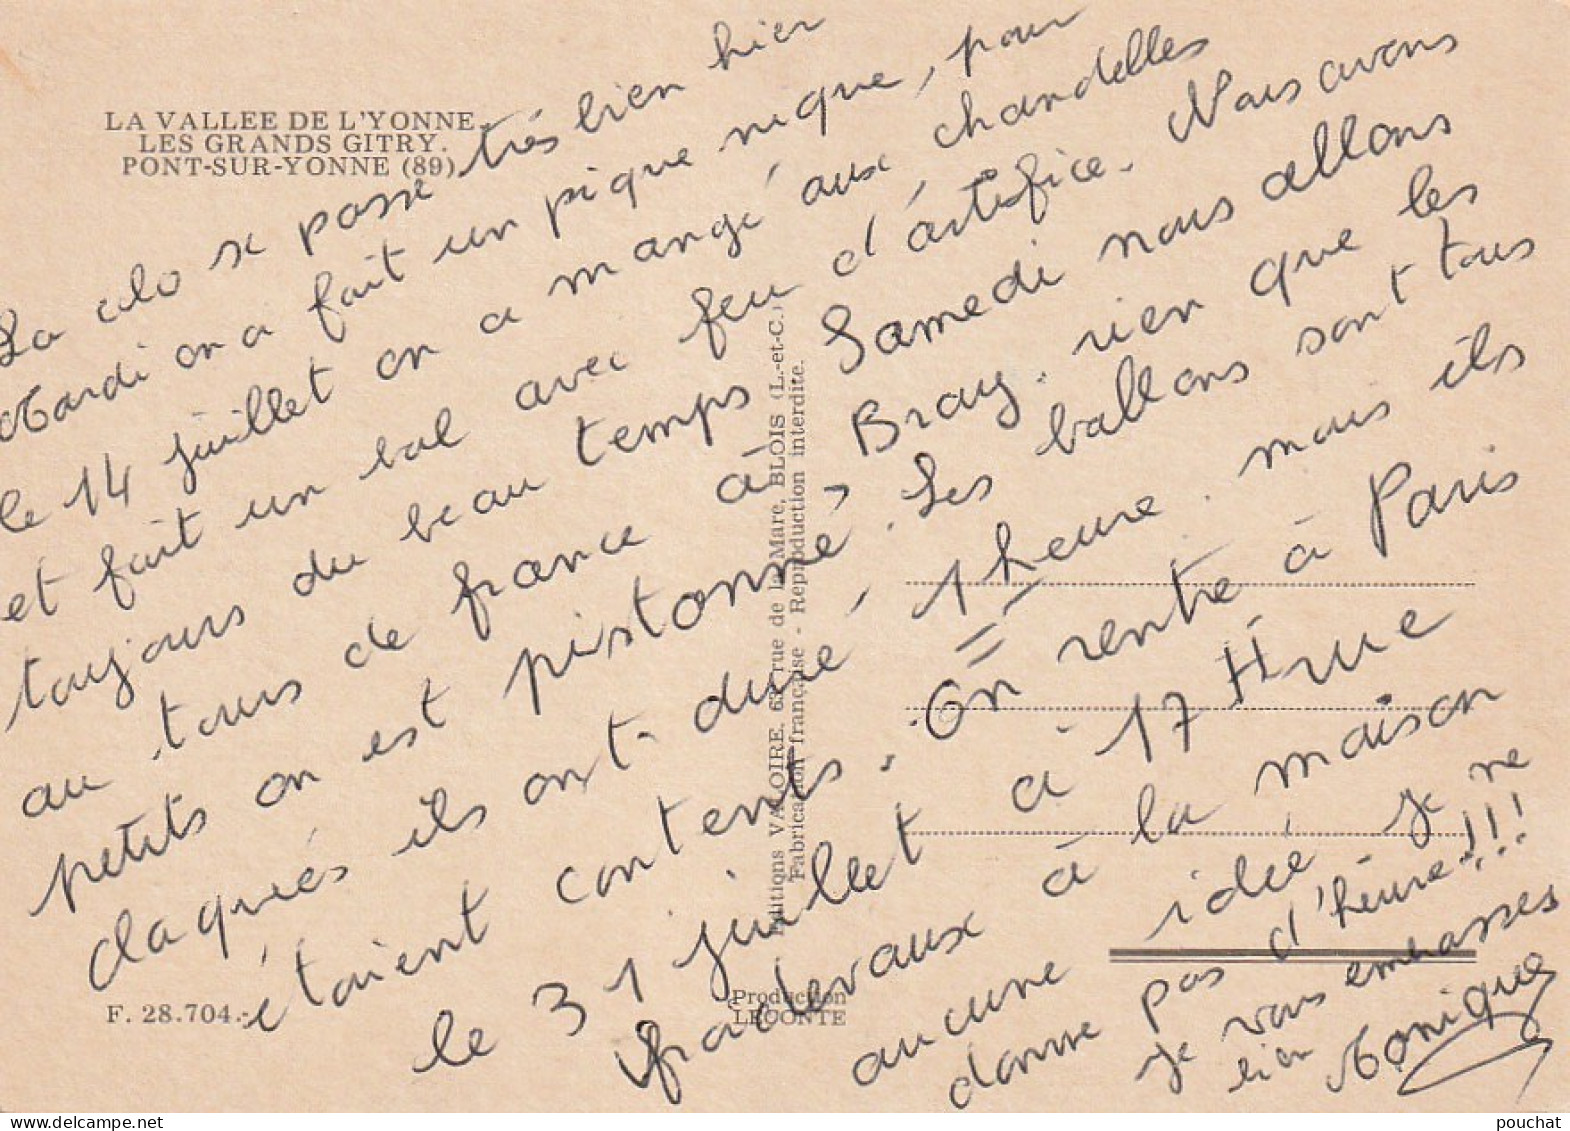 LA VALLEE DE L'YONNE.
LES GRANDS GITRY.
PONT-SUR-YONNE (89)
La colo se passe très bien hier
Mardi on a fait un pique nique, pour
le 14 juillet on a mangé aux chandelles
et fait un bal avec feu d'artifice. Nous avons
toujours du beau temps Samedi nous allons
au tours de france à Bray. rien que les
petits on est pistonné. Les ballons sont tous
claqués ils ont duré 1 heure. mais ils
étaient contents. On rentre à Paris
le 31 juillet à 17 H rue
fradevaux à la maison
aucune idée je ne
donne pas d'heure!!!
je vous embrasses
bien Monique
Editions VALOIRE, 63, rue de la Mare, BLOIS (L.-et-C.)
Fabrication française - Reproduction interdite.
F. 28.704.-
Production
LECONTE
pouchat